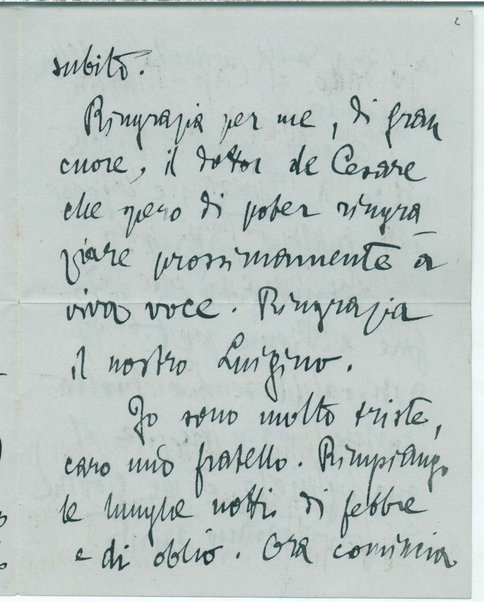 2
subito.
Ringrazia per me, di gran
cuore, il dottor de Cesare
che spero di poter ringra
ziare prossimamente a
viva voce. Ringrazia
il nostro Luigino.
Io sono molto triste,
caro mio fratello. Rimpiango
le lunghe notti di febbre
e di oblio. Ora comincia